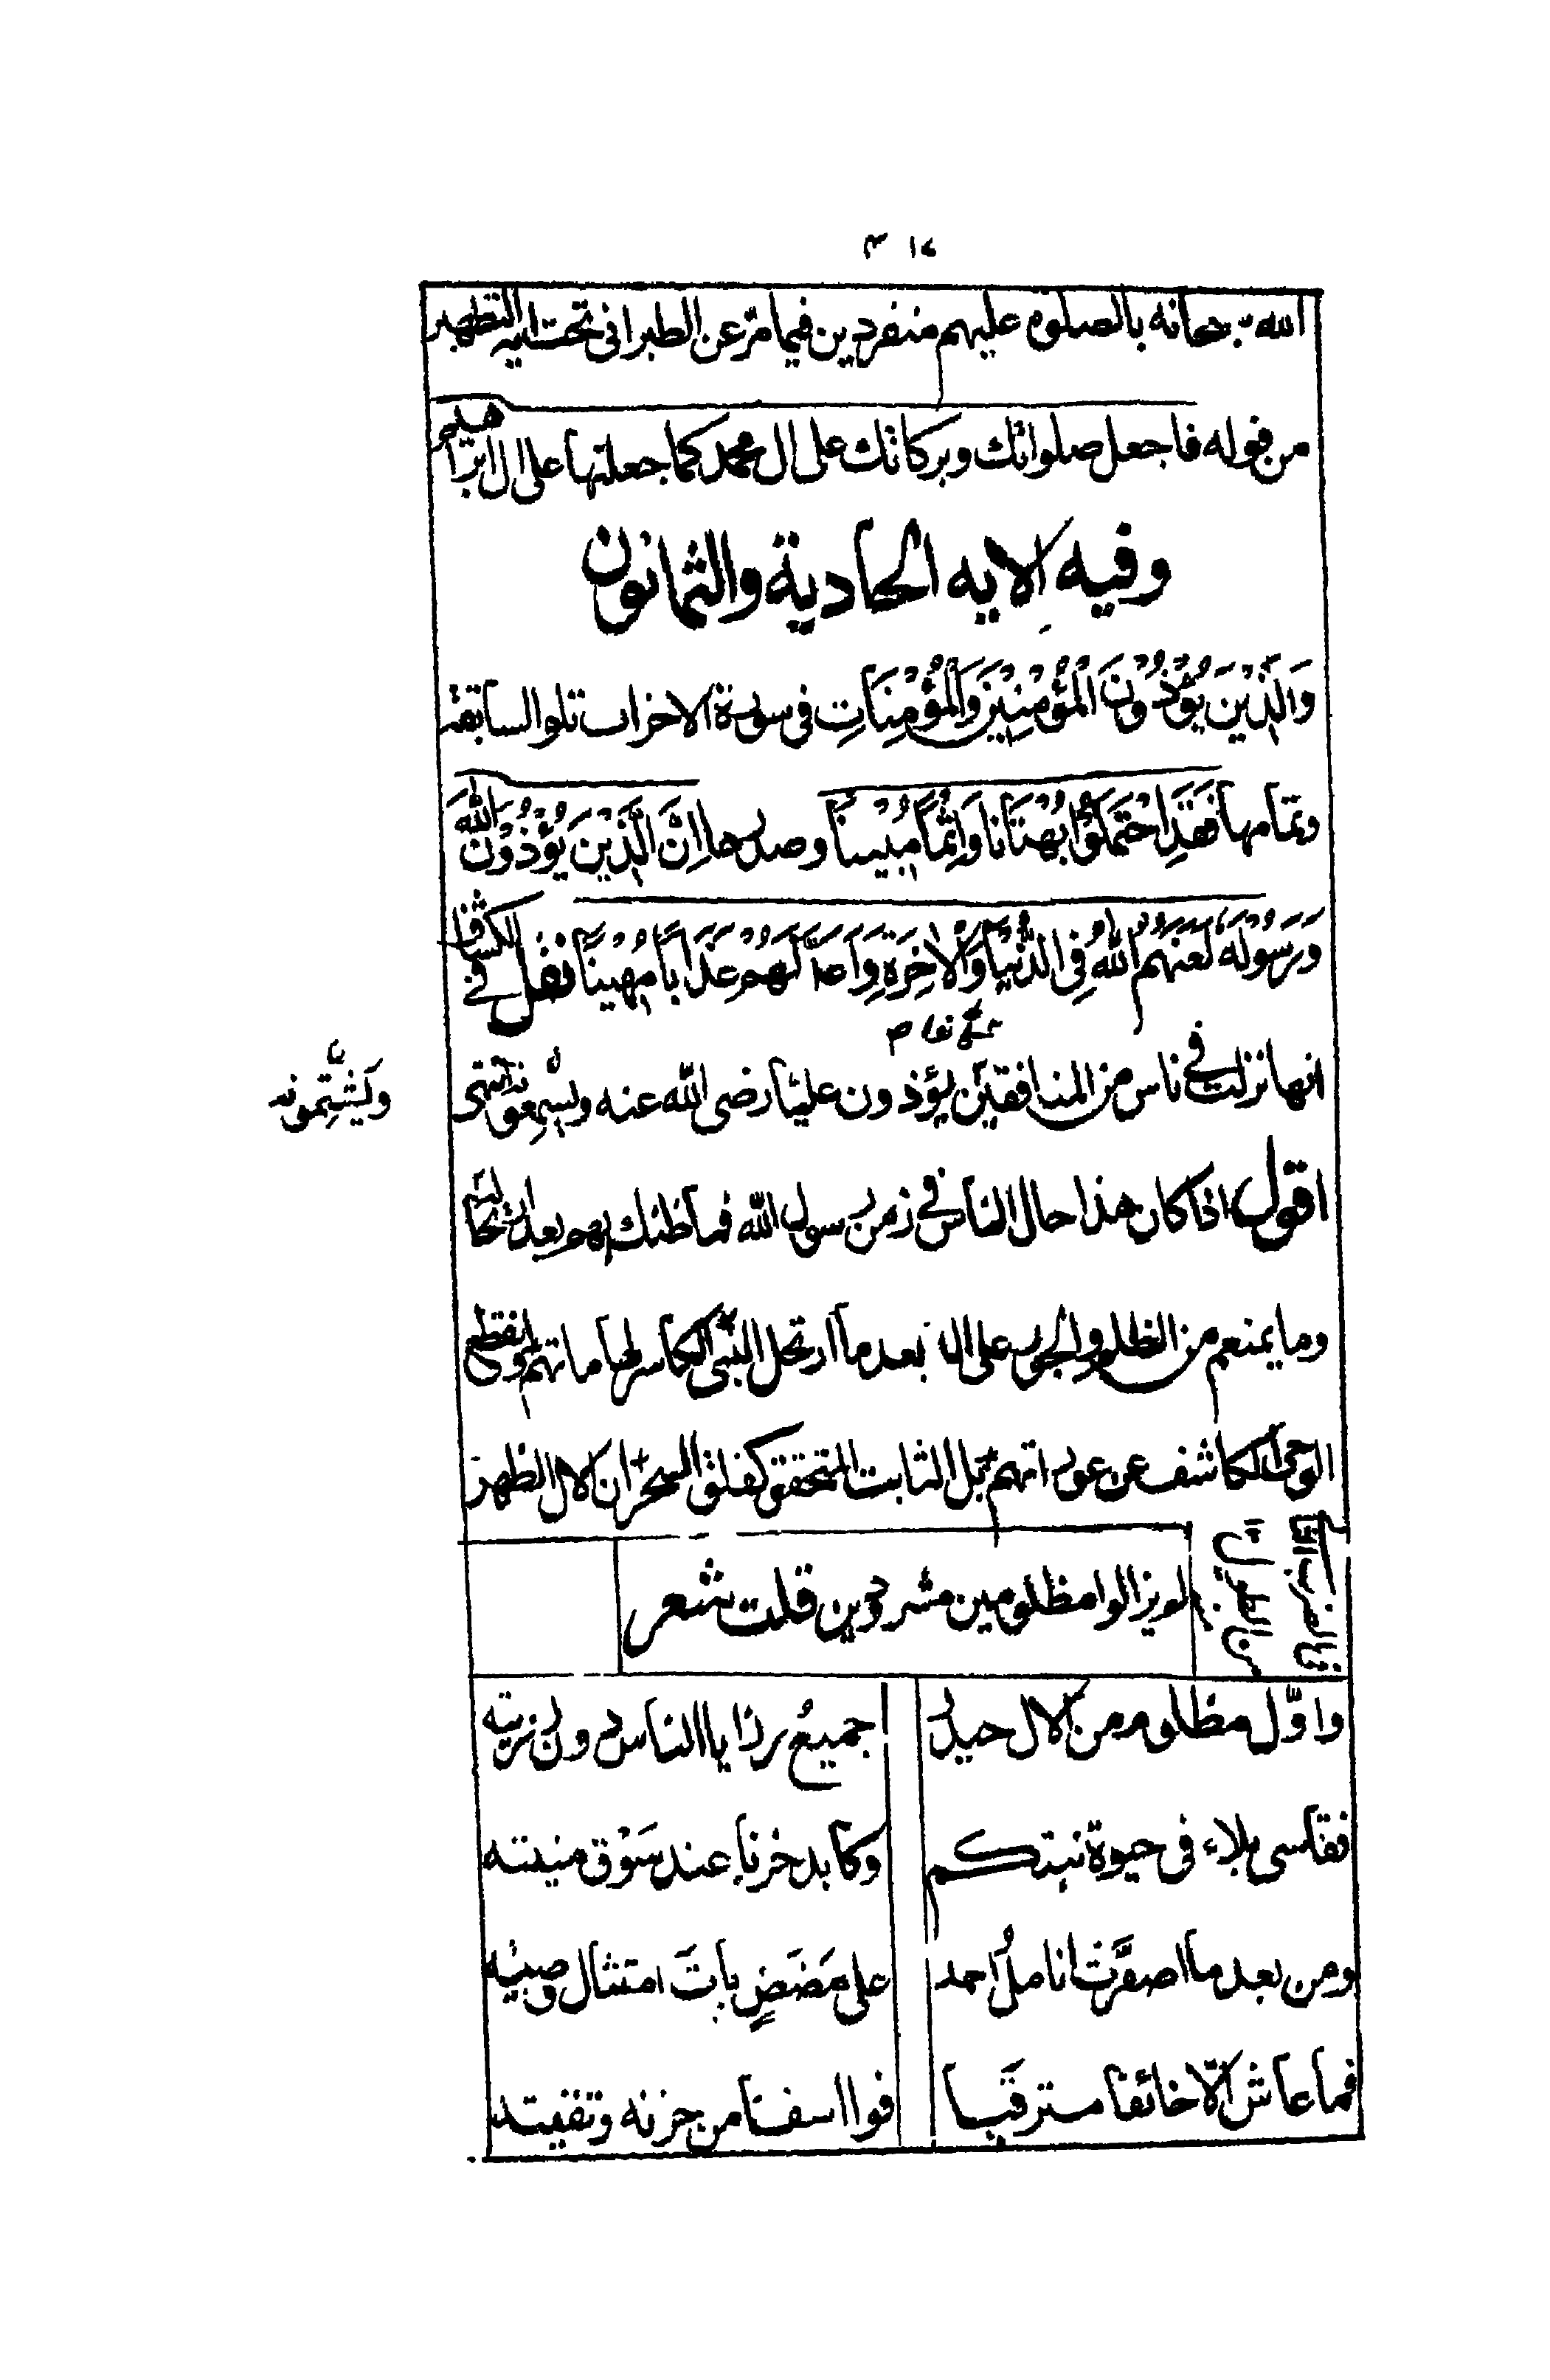 الله سبحانه بالصلوة عليهم منفردين فيما مرّ عن الطبراني تحت اية التطهير
من قوله فاجعل صلواتك وبركاتك على ال محمد كما جعلتها على ال ابراهيم
وفيه الايه الحادية والثمانون
وَالَّذِيْنَ يُؤْذُوْنَ الْمُؤْمِنِيْنَ وَالْمُؤْمِنَاتِ في سورة الاحزاب تلو السابقة
وتمامها فَقَدِ احْتَمَلُوْا بُهْتَانًا وَاِثْمًا مُبِيْنًا وصدرها اِنَّ الَّذِيْنَ يُؤْذُوْنَ اللهَ
وَرَسُوْلَهُ لَعَنَهُمُ اللهُ فِي الدُّنْيَا وَالْاٰخِرَةِ وَاَعَدَّ لَهُمْ عَذَابًا مُهِيْنًا نقل في الكشاف
انها نزلت في ناس من المنافقين يؤذون عليّا رضى الله عنه ويسمعونه انتهى
ويشتمونه
اقول اذا كان هذا حال الناس في زمن رسول الله فما ظنك بهم بعد ارتحاله
وما يمنعهم من الظلم والجور على اله بعد ما ارتحل النبى الكاسر لهاماتهم وانقطع
الوحى الكاشف عن عوراتهم بل الثابت المتحقق كفلق السحر ان الال الطهر
لم يزالوا مظلومين مشردين قلت شعر
واوّل مظلوم من الال حيدر
جميعُ رزايا الناس دون رزيته
فقاسى بلاء في حيوة نبيكم
وكابد حزنا عند سَوْق منيته
ومن بعد ما اصفرَّت اناملُ احمد
على مَضَضٍ باتَ امتثال وصيته
فما عاش الّا خائفا مترقبا
فوا اسفتا من حزنه وتقيته